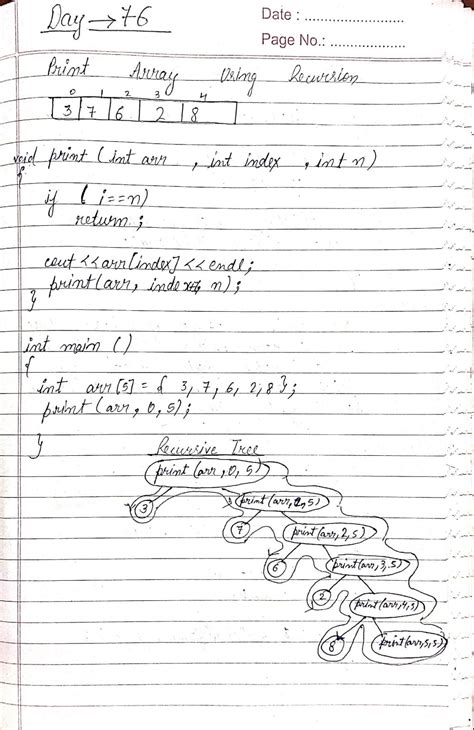 Day → 76
Date : ..........................
Page No.: ....................
Print Array Using Recursion
0 1 2 3 4
3 7 6 2 8
void print (int arr , int index , int n)
{
if ( i==n)
return ;
cout <<arr[index] << endl;
print(arr, index n);
}
int main ()
{
int arr [5] = { 3, 7, 6, 2, 8 };
print (arr, 0, 5);
}
Recursive Tree
print (arr, 0, 5)
3 print (arr, 5)
7 print (arr, 2, 5)
6 print (arr, 3, 5)
2 print (arr, 4, 5)
8 print (arr, 5, 5)